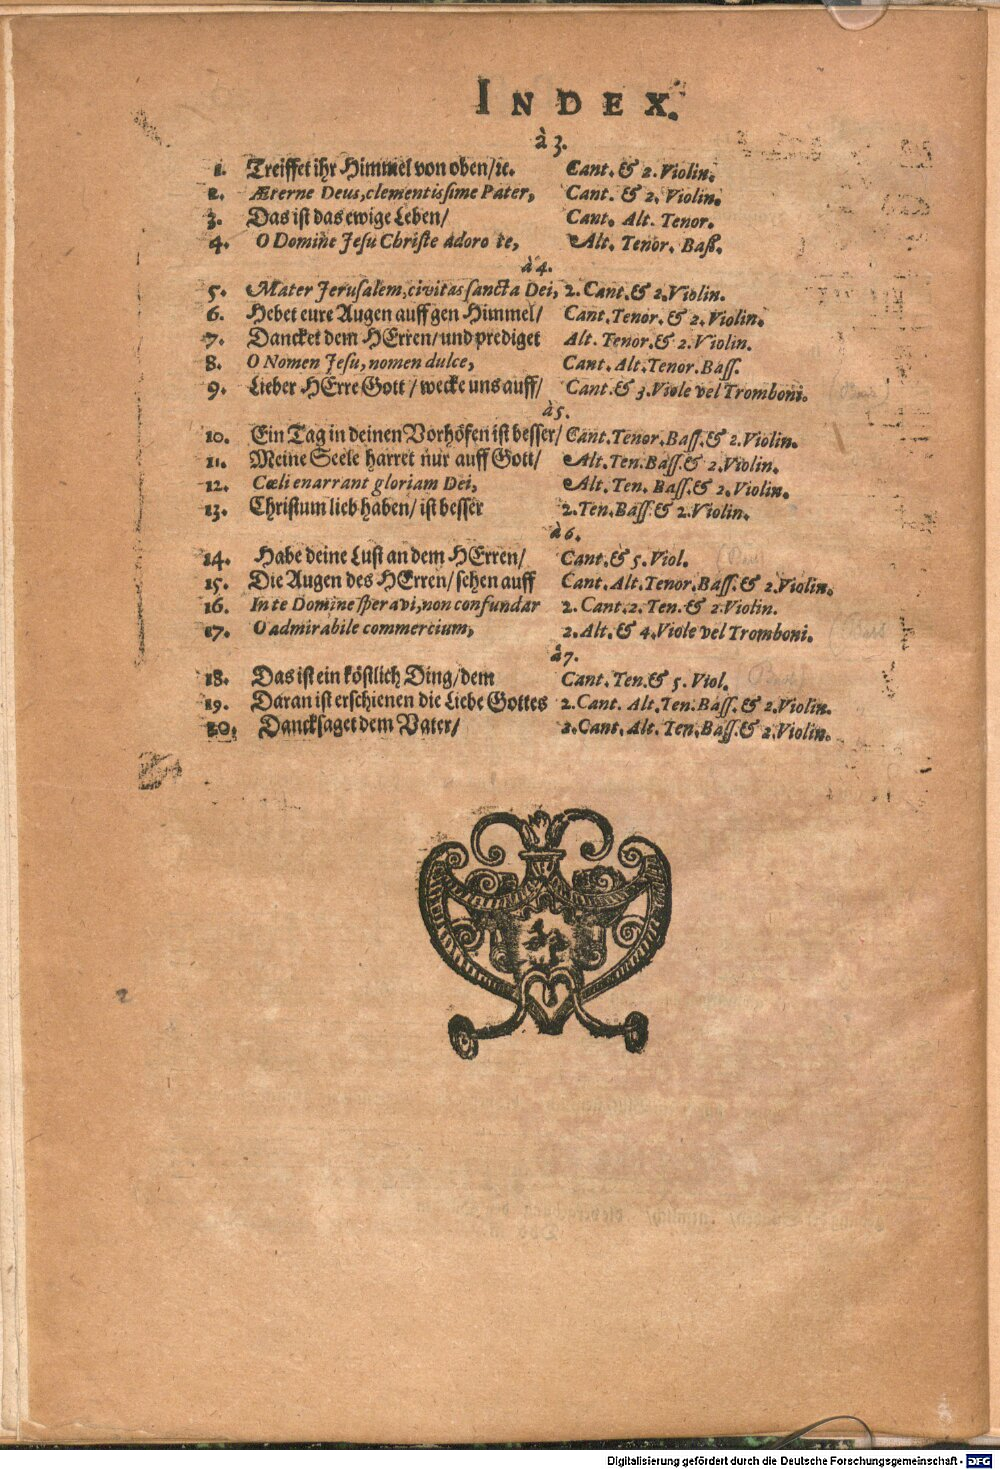 INDEX.
à 3.
1. Treiffet ihr Himmel von oben/ꝛc. Cant. & 2. Violin.
2. Æterne Deus, clementissime Pater, Cant. & 2. Violin.
3. Das ist das ewige Leben/ Cant. Alt. Tenor.
4. O Domine Jesu Christe adoro te, Alt. Tenor. Baß.
à 4.
5. Mater Jerusalem, civitas sancta Dei, 2. Cant. & 2. Violin.
6. Hebet eure Augen auff gen Himmel/ Cant. Tenor. & 2. Violin.
7. Dancket dem HErren/ und prediget Alt. Tenor. & 2. Violin.
8. O Nomen Jesu, nomen dulce, Cant. Alt. Tenor. Bass.
9. Lieber HErre Gott/ wecke uns auff/ Cant. & 3. Viole vel Tromboni.
à 5.
10. Ein Tag in deinen Vorhöfen ist besser/ Cant. Tenor. Bass. & 2. Violin.
11. Meine Seele harret nur auff Gott/ Alt. Ten. Bass. & 2. Violin.
12. Cæli enarrant gloriam Dei, Alt. Ten. Bass. & 2. Violin.
13. Christum lieb haben/ ist besser 2. Ten. Bass. & 2. Violin.
à 6.
14. Habe deine Lust an dem HErren/ Cant. & 5. Viol.
15. Die Augen des HErren/ sehen auff Cant. Alt. Tenor. Bass. & 2. Violin.
16. In te Domine speravi, non confundar 2. Cant. 2. Ten. & 2. Violin.
17. O admirabile commercium, 2. Alt. & 4. Viole vel Tromboni.
à 7.
18. Das ist ein köstlich Ding/ dem Cant. Ten. & 5. Viol.
19. Daran ist erschienen die Liebe Gottes 2. Cant. Alt. Ten. Bass. & 2. Violin.
20. Dancksaget dem Vater/ 2. Cant. Alt. Ten. Bass. & 2. Violin.
2
Digitalisierung gefördert durch die Deutsche Forschungsgemeinschaft - DFG